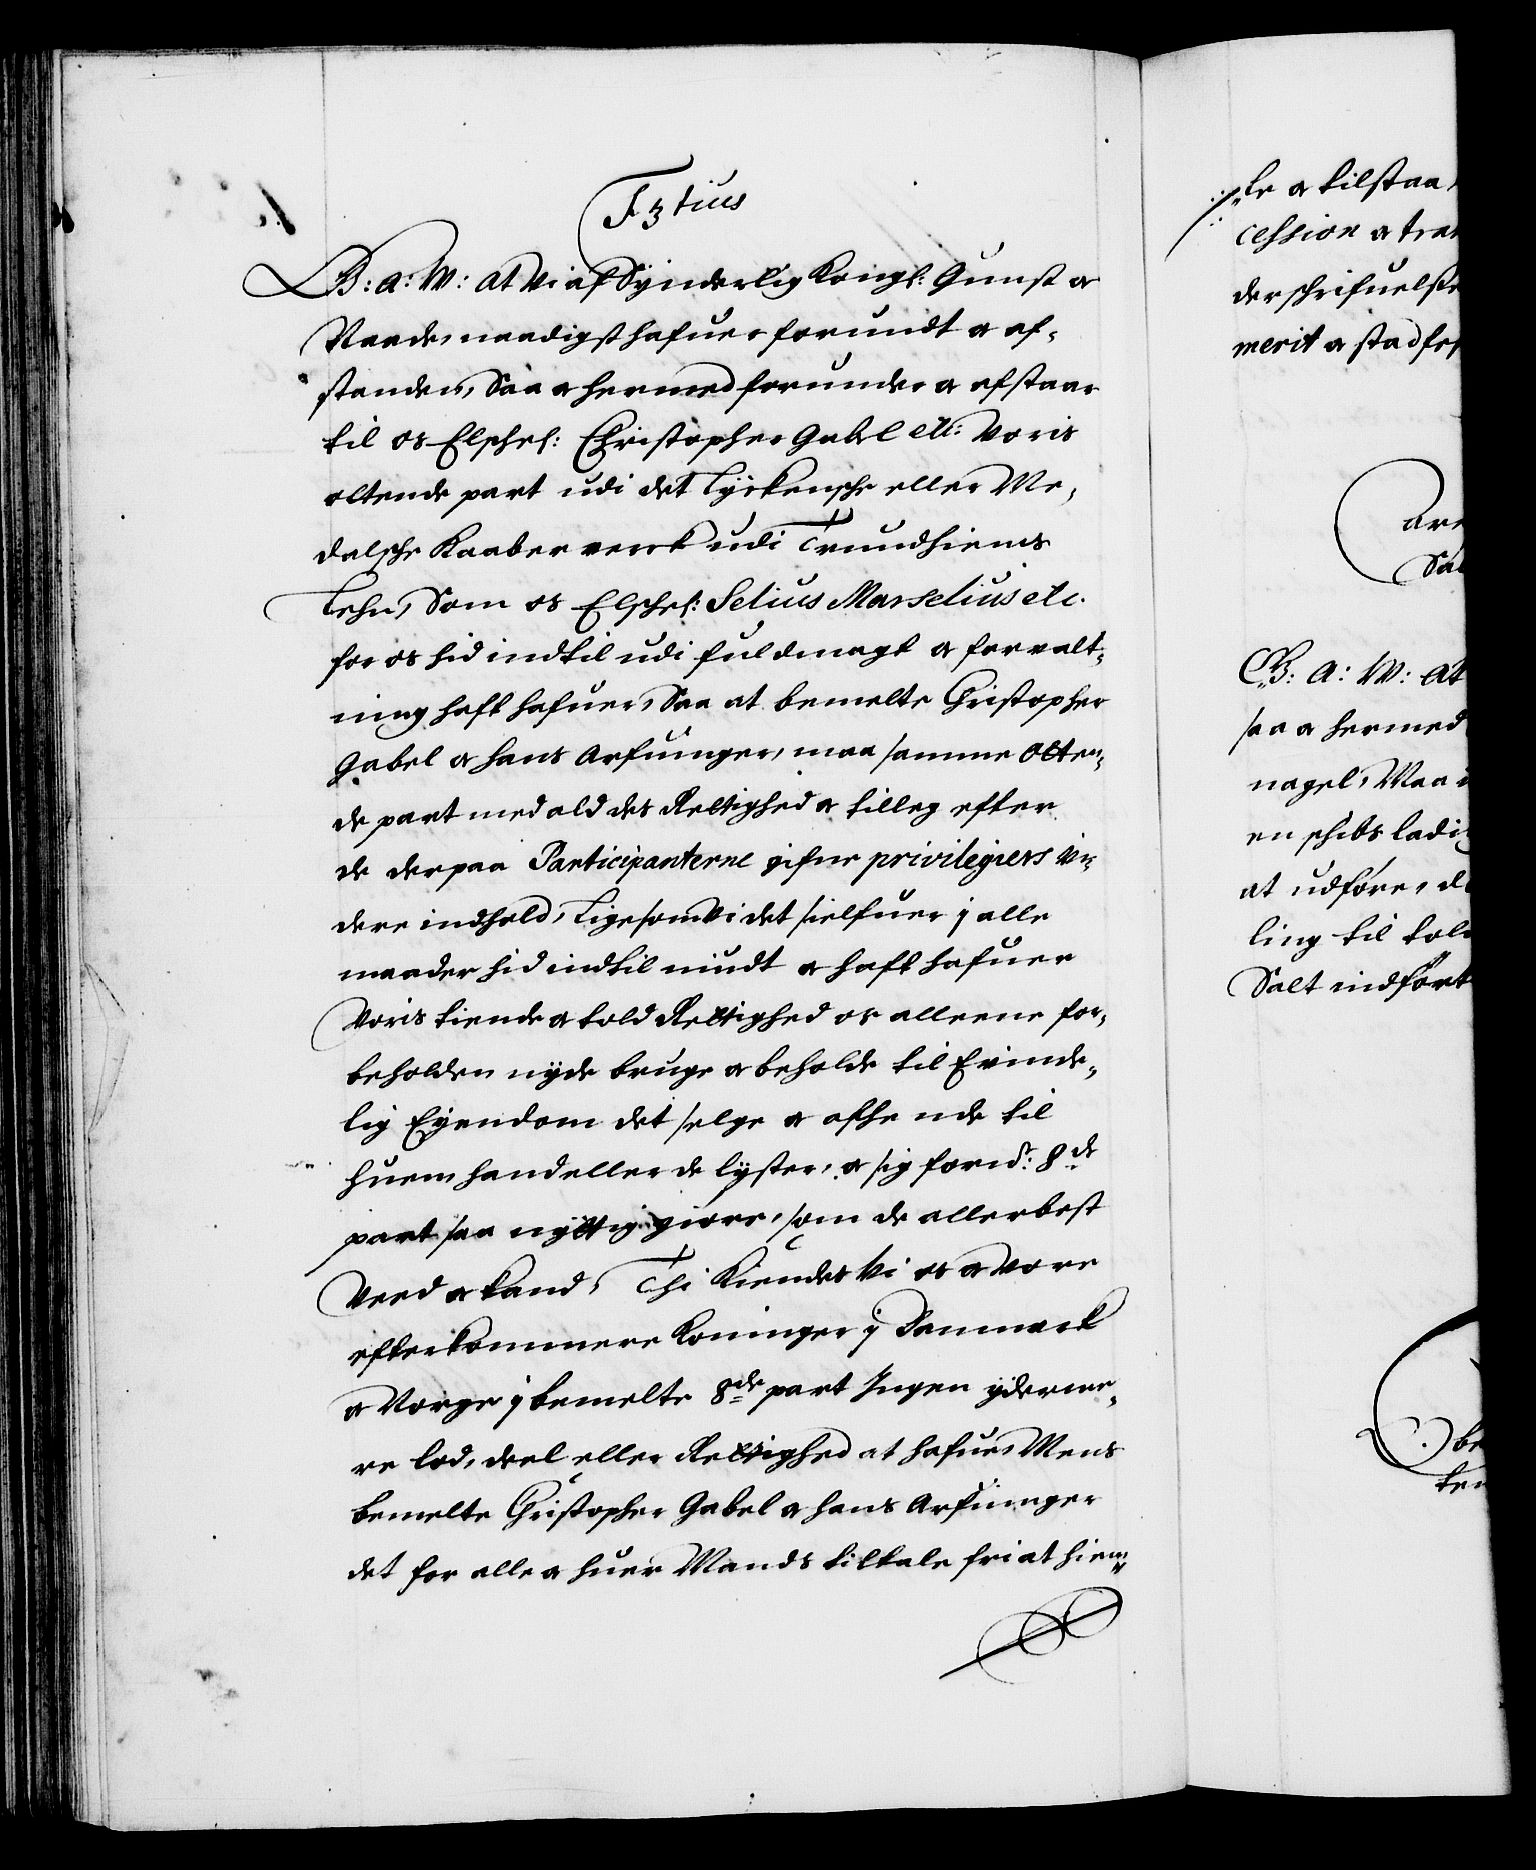 F 3tius
G: A: W: at Vi af Synderlig Kongl: Gunst og
Naade, naadigst hafuer forundt og af¬
standen, Saa og hermed forunder og afstaar
til os Elschel: Christopher Gabel etc: Voris
ottende part udi det Lyskensche eller Me¬
dalsche Kaaber verck udi Trundhiems
Lehn, Som os Elschel: Selius Marselius etc.
for os hid indtil udi fuldmagt og forvalt¬
ning haft hafuer, Saa at bemelte Christopher
Gabel og hans Arfuinger, maa samme Otten¬
de part med ald des Rettighed og tilleg efter
de derpaa Participanterne gifne privilegiers vi¬
dere indhold, Ligesom Vi det sielfuer j alle
maader hid indtil niudt og haft hafuer
Voris tiende og told Rettighed os alleene for¬
beholden nyde bruge og beholde til Evinde¬
lig Eyendom det selge og afhende til
huem hand eller de lyster, og sig for.ne 8de
part saa nyttig giøre, som de allerbest
Veed og kand, Thi Kiendes Vi os og Vore
efterkommere Koninger j Danmarck
og Norge j bemelte 8de part Ingen yderme¬
re lod, deel eller Rettighed at hafue, Mens
bemelte Christopher Gabel og hans Arfuinger
det for alle og huer Mands tiltale fri at hiem¬
le og tilstaa,
cession og tra
derschrifuelse
merit og stadfes
are
Sal
G: A: W: at
saa og hermed
nagel, Maa
en schibs ladi
at udføre, d
ling til told
Salt indført
be
ten